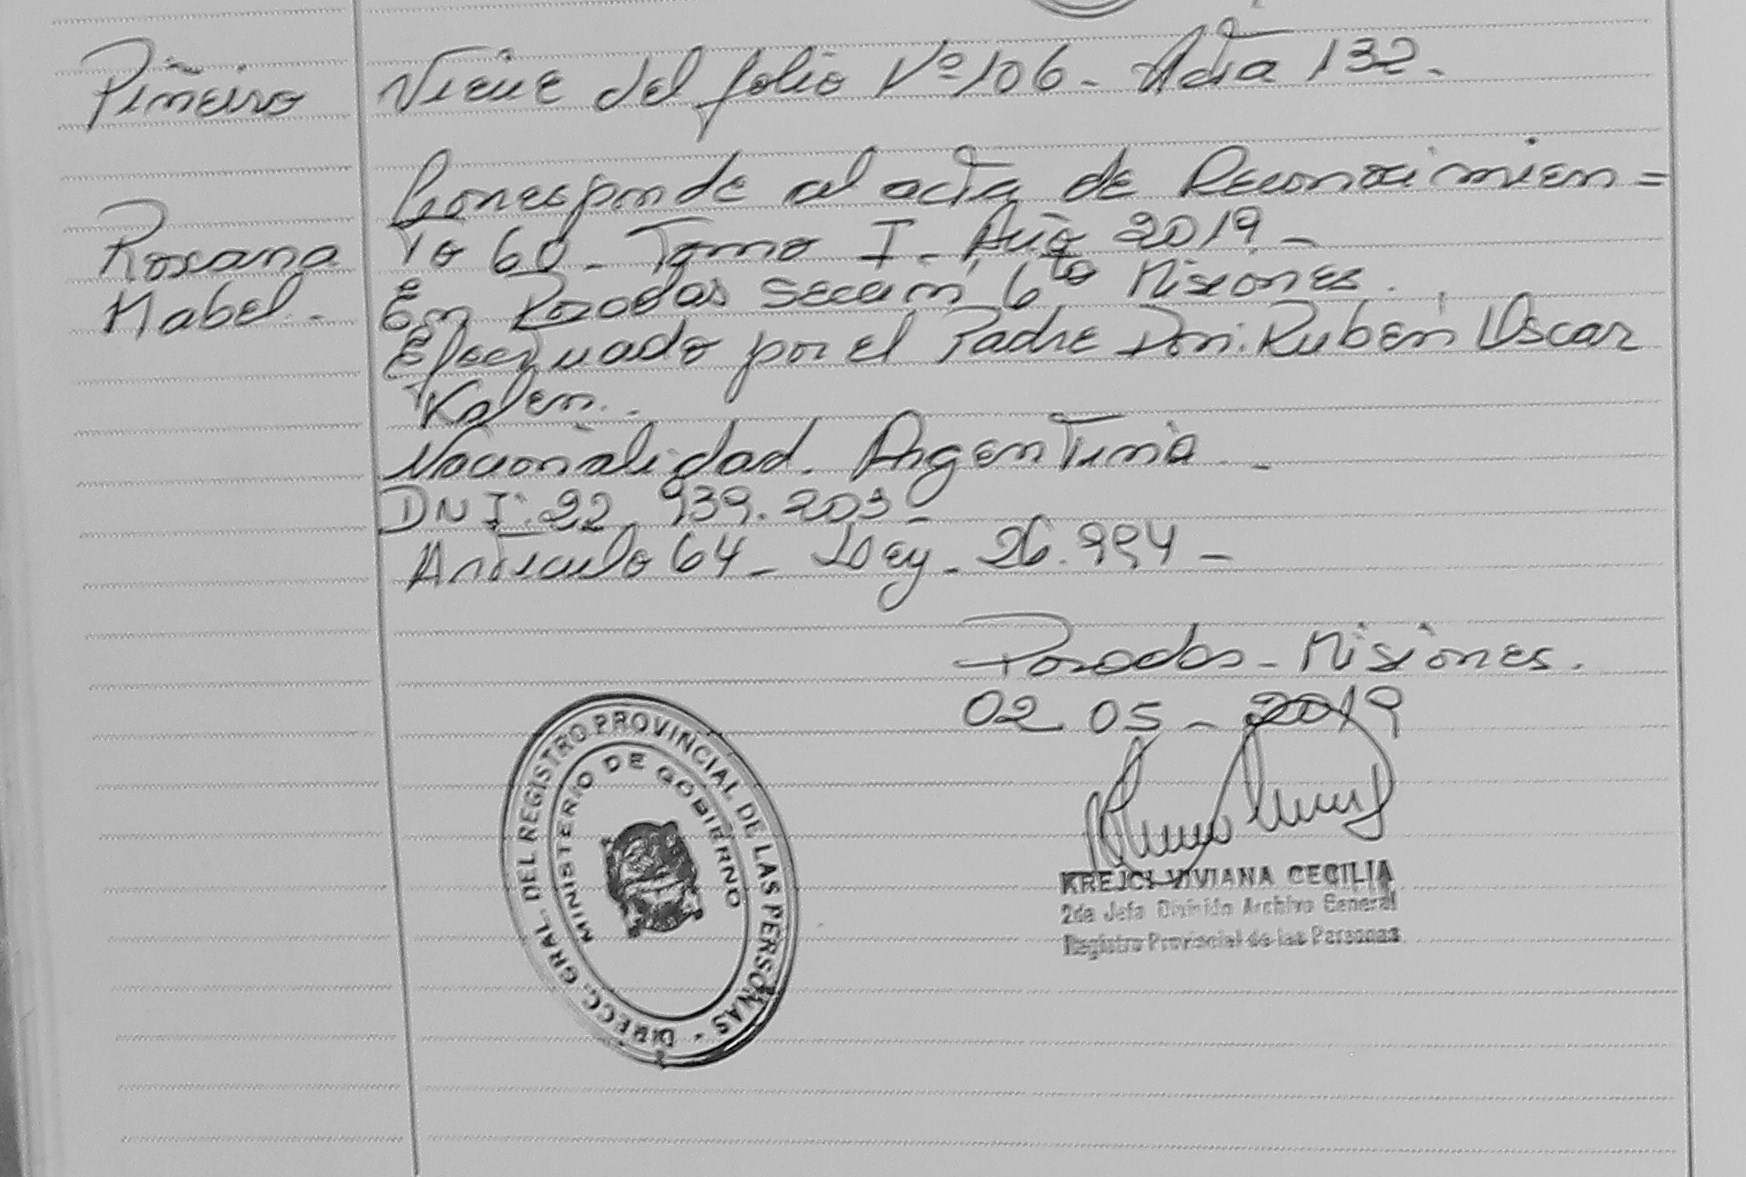 Piñeiro
Roxana
Mabel.
Viene del folio Nº 106 - Acta 132.
Corresponde al acta de Reconocimien=
to 60 - Tomo I - Año 2019 -
En Posadas sección 6ta Misiones.
Efectuado por el Padre Don: Rubén Oscar
Nacionalidad. Argentina -
DNI: 22.939.203 -
Articulo 64 - Ley - 26.994 -
Posadas - Misiones.
02 05 - 2019
KREJCI VIVIANA CECILIA
2da Jefa División Archivo General
Registro Provincial de las Personas
DIRECC. GRAL. DEL REGISTRO PROVINCIAL DE LAS PERSONAS -
MINISTERIO DE GOBIERNO